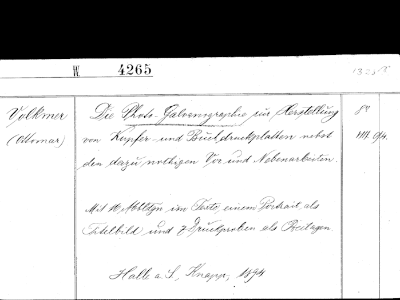 W 4265
Volkmer
(Ottomar)
Die Photo-Galvanographie zur Herstellung
von Kupfer- und Buchdruckplatten nebst
den dazu nöthigen Vor und Nebenarbeiten.
8º
VIII. 94.
Mit 16 Abbldgn. im Texte, einem Portrait als
Titelbild und 7 Druckproben als Beilagen.
Halle a. S., Knapp, 1894